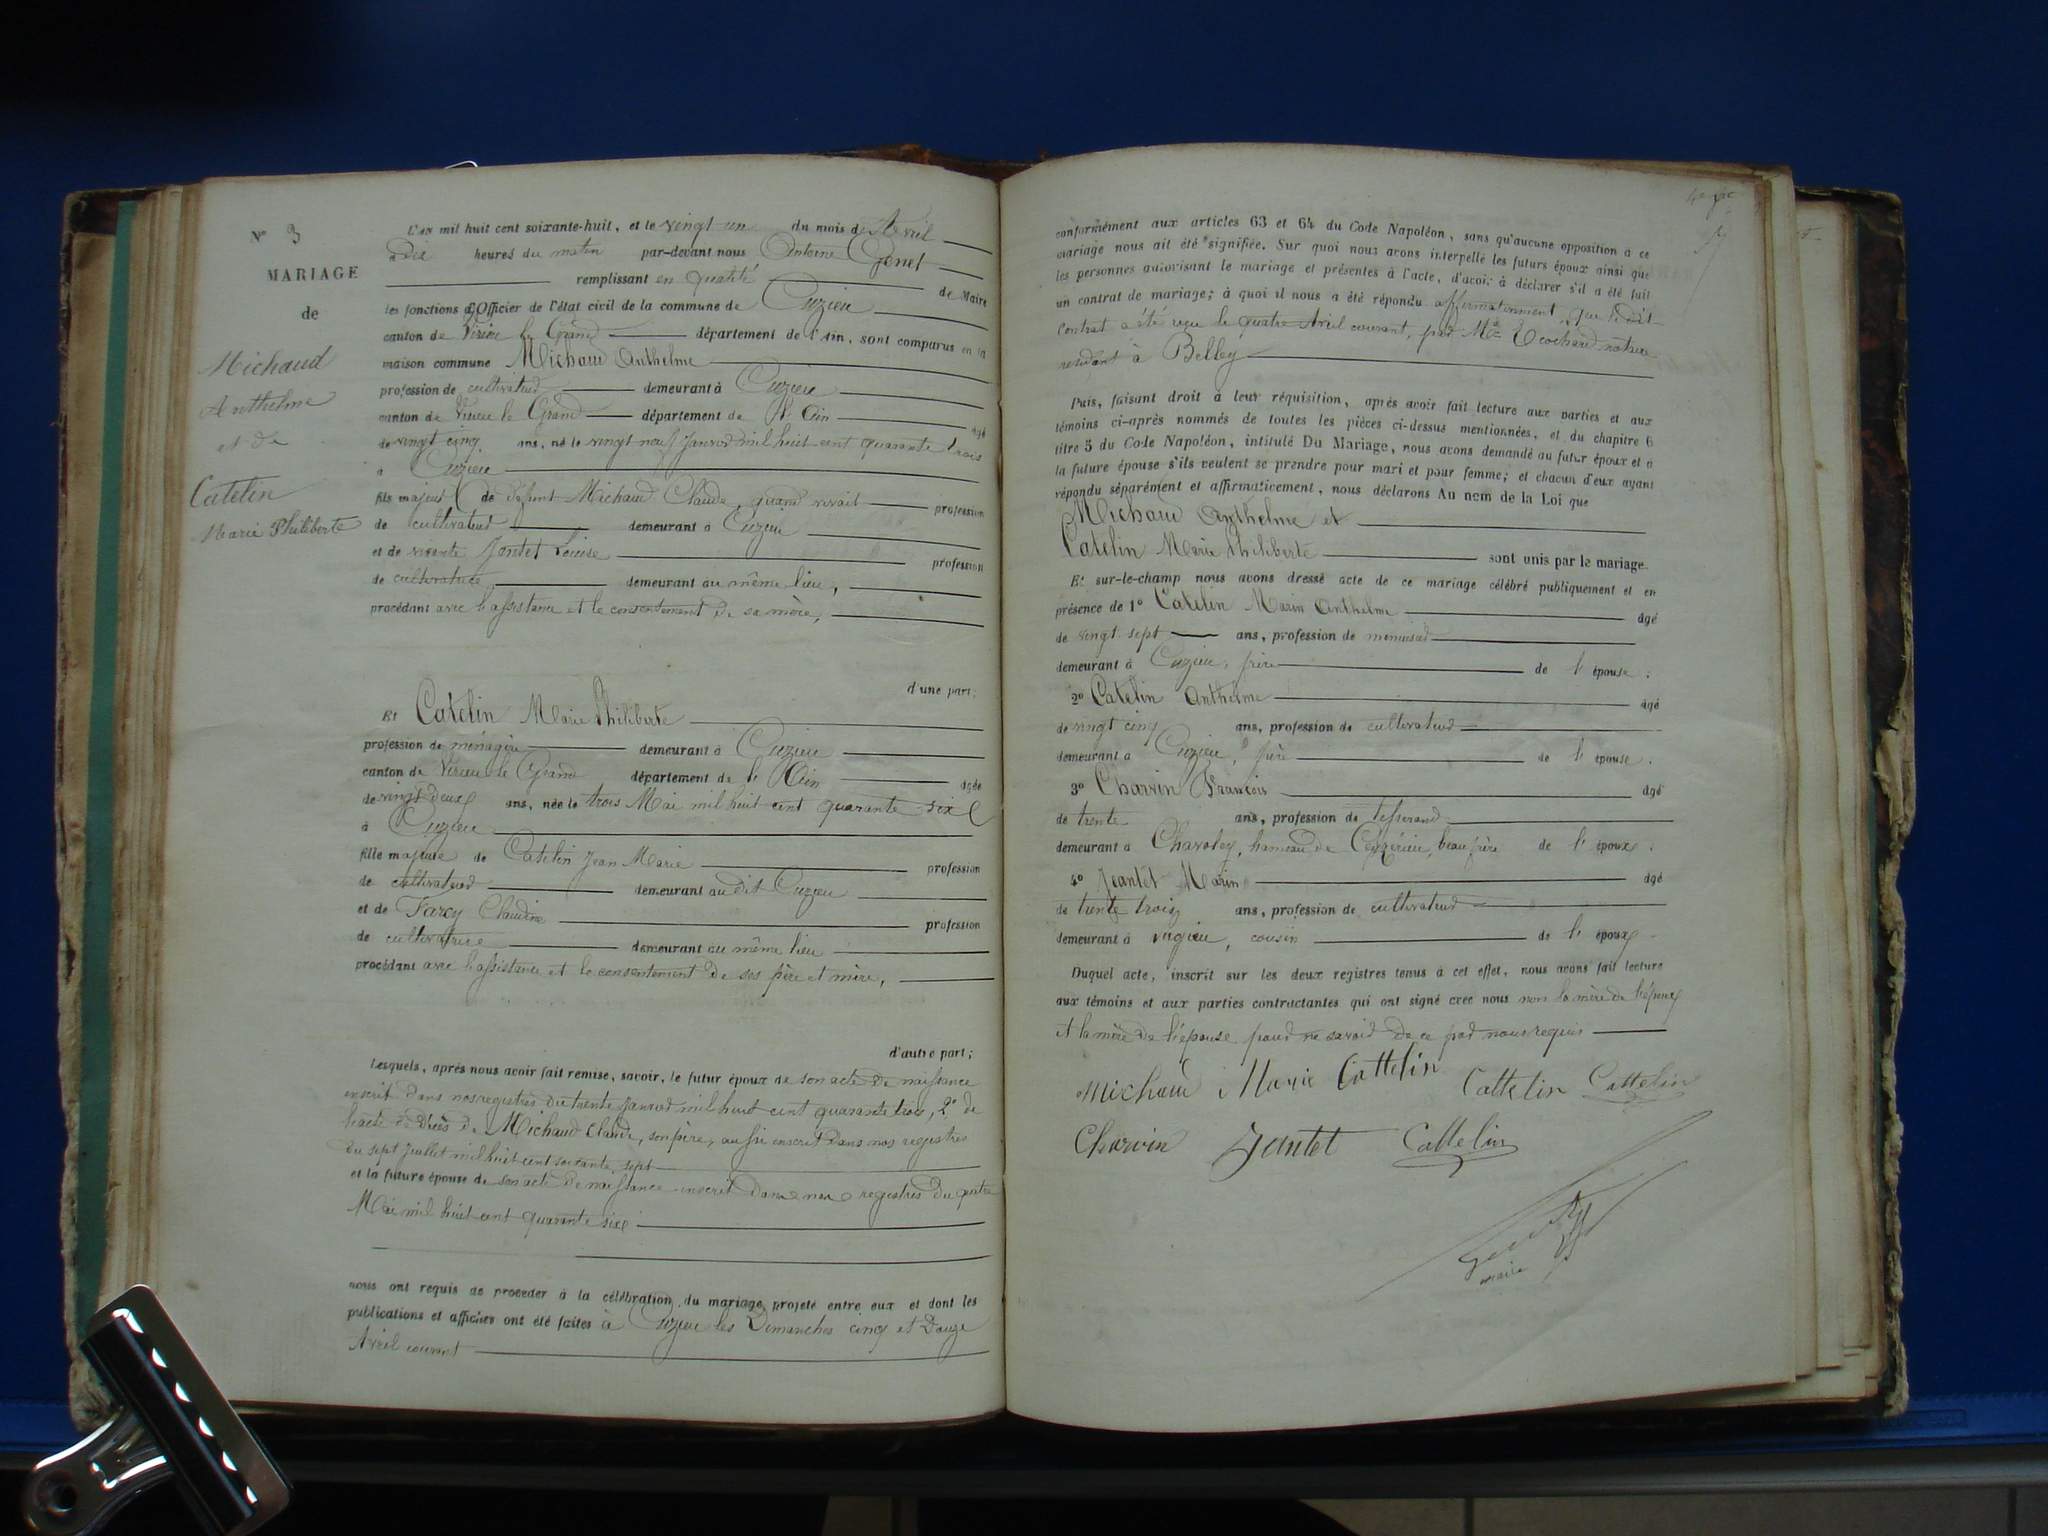 N° 3
MARIAGE
de
Michaud
Anthelme
et de
Catelin
Marie Philiberte
L'an mil huit cent soixante-huit, et le vingt un du mois d'Avril
à Dix heures du matin par-devant nous Antoine Genet
remplissant en qualité de Maire
les fonctions d'Officier de l'état civil de la commune de Cuzieu
canton de Virieu le Grand département de l'Ain, sont comparus en la
maison commune Michaud Anthelme
profession de cultivateur demeurant à Cuzieu
canton de Virieu le Grand département de l'Ain âgé
de vingt cinq ans, né le vingt neuf Janvier mil huit cent quarante trois
à Cuzieu
fils majeur de défunt Michaud Claude, quand vivait profession
de cultivateur demeurant à Cuzieu
et de vivante Jantet Louise profession
de cultivatrice, demeurant au même lieu,
procédant avec l'assistance et le consentement de sa mère,
d'une part;
Et Catelin Marie Philiberte
profession de ménagère demeurant à Cuzieu
canton de Virieu le Grand département de l'Ain âgée
de vingt deux ans, née le trois Mai mil huit cent quarante six
à Cuzieu
fille majeure de Catelin Jean Marie profession
de cultivateur demeurant au dit Cuzieu
et de Farcy Claudine profession
de cultivatrice demeurant au même lieu
procédant avec l'assistance et le consentement de ses père et mère,
d'autre part;
Lesquels, après nous avoir fait remise, savoir, le futur époux de son acte de naissance
inscrit dans nos registres du trente Janvier mil huit cent quarante trois, 2° de
l'acte de décès de Michaud Claude, son père, aussi inscrit dans nos registres
du sept Juillet mil huit cent soixante sept
et la future épouse de son acte de naissance inscrit dans nos registres du quatre
Mai mil huit cent quarante six
nous ont requis de procéder à la célébration du mariage projeté entre eux et dont les
publications et affiches ont été faites à Cuzieu les Dimanches cinq et Douze
Avril courant
conformément aux articles 63 et 64 du Code Napoléon, sans qu'aucune opposition a ce
mariage nous ait été signifiée. Sur quoi nous avons interpellé les futurs époux ainsi que
les personnes autorisant le mariage et présentes à l'acte, d'avoir à déclarer s'il a été fait
un contrat de mariage; à quoi il nous a été répondu affirmativement, que le dit
Contrat a été reçu le quatre Avril courant, par Me Ecochard notaire
résidant à Belley
Puis, faisant droit à leur réquisition, après avoir fait lecture aux parties et aux
témoins ci-après nommés de toutes les pièces ci-dessus mentionnées, et du chapitre 6
titre 5 du Code Napoléon, intitulé Du Mariage, nous avons demandé au futur époux et à
la future épouse s'ils veulent se prendre pour mari et pour femme; et chacun d'eux ayant
répondu séparément et affirmativement, nous déclarons Au nom de la Loi que
Michaud Anthelme et
Catelin Marie Philiberte sont unis par le mariage.
Et sur-le-champ nous avons dressé acte de ce mariage célébré publiquement et en
présence de 1° Catelin Marin Anthelme âgé
de vingt sept ans, profession de menuisier
demeurant à Cuzieu, frère de l'épouse.
2° Catelin Anthelme âgé
de vingt cinq ans, profession de cultivateur
demeurant à Cuzieu, frère de l'épouse.
3° Charvin François âgé
de trente ans, profession de tisserand
demeurant à Charoley, hameau de Ceyzérieu, beau frère de l'époux.
4° Jeantet Marin âgé
de trente trois ans, profession de cultivateur
demeurant à Vugieu, cousin de l'époux
Duquel acte, inscrit sur les deux registres tenus à cet effet, nous avons fait lecture
aux témoins et aux parties contractantes qui ont signé avec nous non la mère de l'époux
et la mère de l'épouse pour ne savoir de ce par nous requis
Michaud Marie Cattelin Cattelin Cattelin
Charvin Jantet Cattelin
Genet
maire